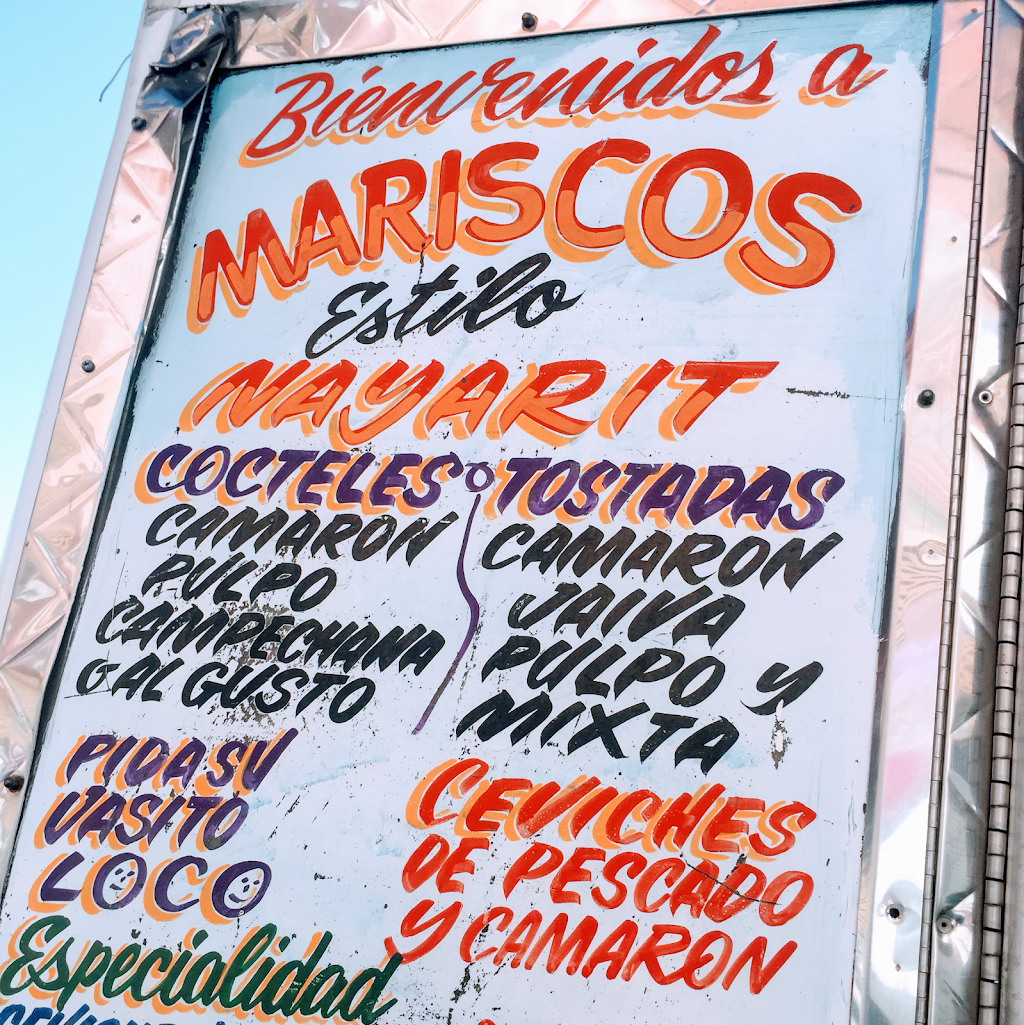 Bienvenidos a
MARISCOS
Estilo
NAYARIT
COCTELES
CAMARON
PULPO
CAMPECHANA
Y AL GUSTO
TOSTADAS
CAMARON
JAIVA
PULPO Y
MIXTA
PIDA SU
VASITO
LOCO
CEVICHES
DE PESCADO
Y CAMARON
Especialidad